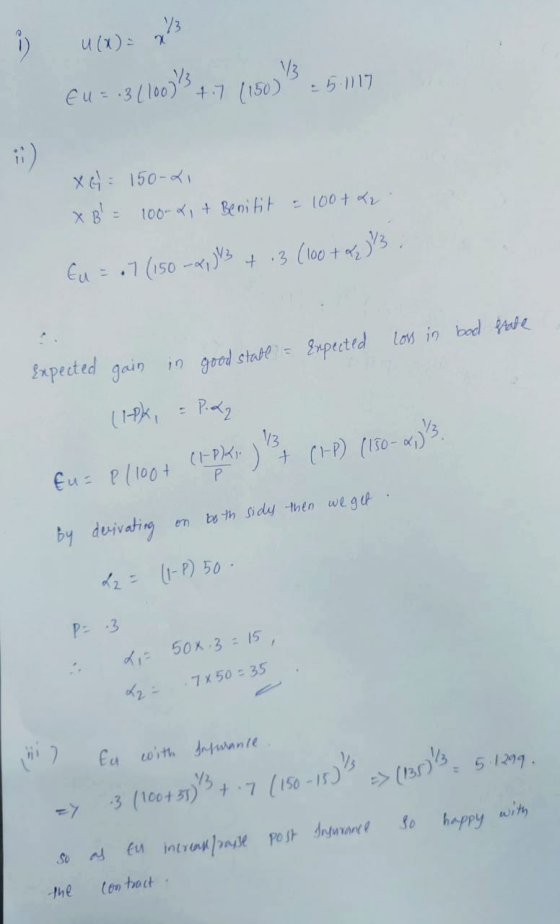 i) u(x) = x^1/3
Eu = .3(100)^1/3 + .7 (150)^1/3 = 5.1117
ii)
XG' = 150-α1
XB' = 100-α1 + Benifit = 100+α2
Eu = .7(150-α1)^1/3 + .3(100+α2)^1/3.
∴
Expected gain in good state = Expected loss in bad state
(1-P)α1 = P.α2
Eu = P(100+ (1-P)α1/P)^1/3 + (1-P) (150-α1)^1/3.
By derivating on both sidy then we get.
α2 = (1-P) 50.
P= .3
∴ α1 = 50x.3 = 15,
α2 = .7x50 = 35.
iii) Eu with Insurance.
=> .3(100+35)^1/3 + .7 (150-15)^1/3 => (135)^1/3 = 5.1299.
so as Eu increase/raise post Insurance so happy with
the contract.